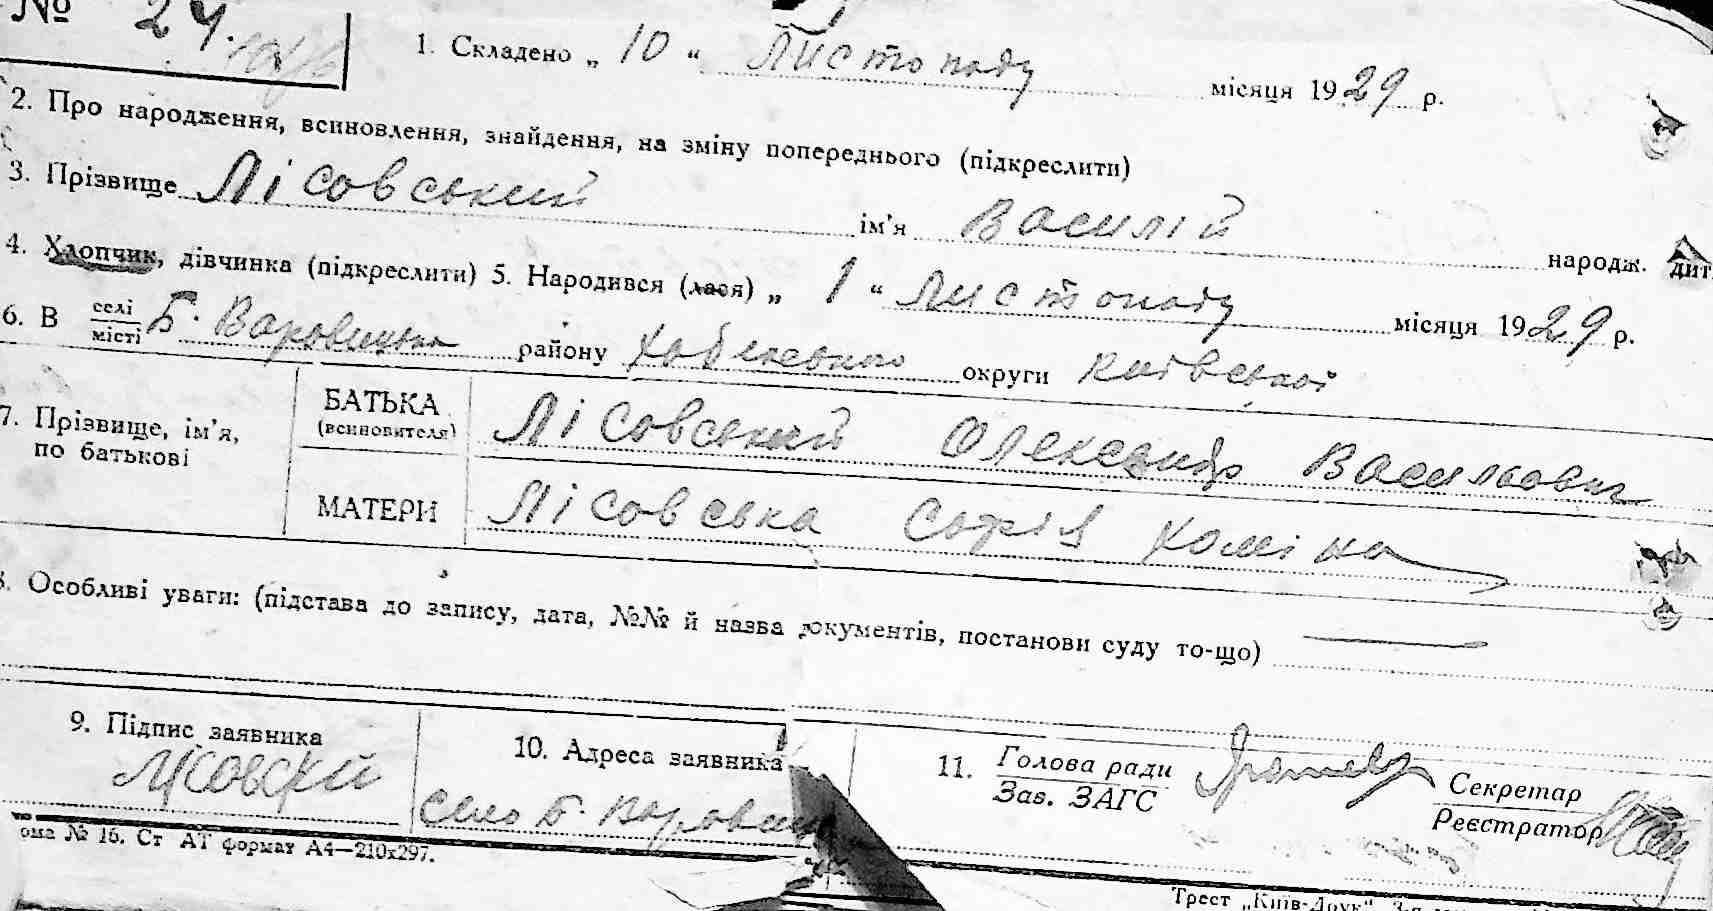 № 24.
1. Складено „ 10 “ Листопаду місяця 1929 р.
2. Про народження, всиновлення, знайдення, на зміну попереднього (підкреслити)
3. Прізвище Лісовський ім’я Василій народж. дит
4. Хлопчик, дівчинка (підкреслити) 5. Народився (лася) „ 1 “ Листопаду місяця 1929 р.
6. В селі місті Б. Варовицька району Хабенського округи Київської
7. Прізвище, ім’я, по батькові
БАТЬКА (всиновителя) Лісовський Олександр Васильович
МАТЕРИ Лісовська Софія Хоміна
8. Особливі уваги: (підстава до запису, дата, №№ й назва документів, постанови суду то-що)
9. Підпис заявника
Лісовскій
10. Адреса заявника
село Б. Варовицьк
11. Голова ради
Зав. ЗАГС
Секретар
Реєстратор
ома № 16. Ст АТ формат А4—210х297.
Трест „Київ-Друк“